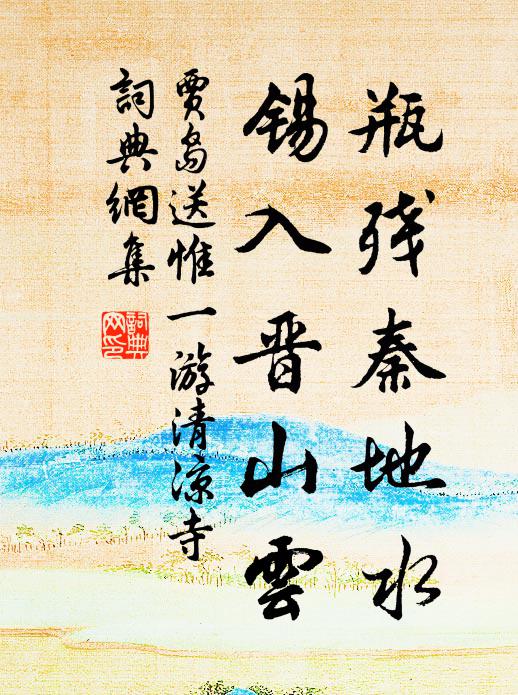 瓶残秦地水
锡入晋山雲
賈島送惟一游清凉寺
詞典網集
詞典
网印